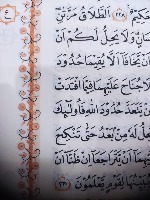 حَكِيمٌ ﴿٢٢٨﴾ ٱلطَّلَٰقُ مَرَّتَانِ
وَلَا يَحِلُّ لَكُمْ أَن
أَن يَخَافَآ أَلَّا يُقِيمَا حُدُودَ
فَلَا جُنَاحَ عَلَيْهِمَا فِيمَا ٱفْتَدَتْ
وَمَن يَتَعَدَّ حُدُودَ ٱللَّهِ فَأُو۟لَٰٓئِكَ
تَحِلُّ لَهُۥ مِنۢ بَعْدُ حَتَّىٰ تَنكِحَ
عَلَيْهِمَآ أَن يَتَرَاجَعَآ إِن ظَنَّآ أَن
يُبَيِّنُهَا لِقَوْمٍ يَعْلَمُونَ ﴿٢٣٠﴾